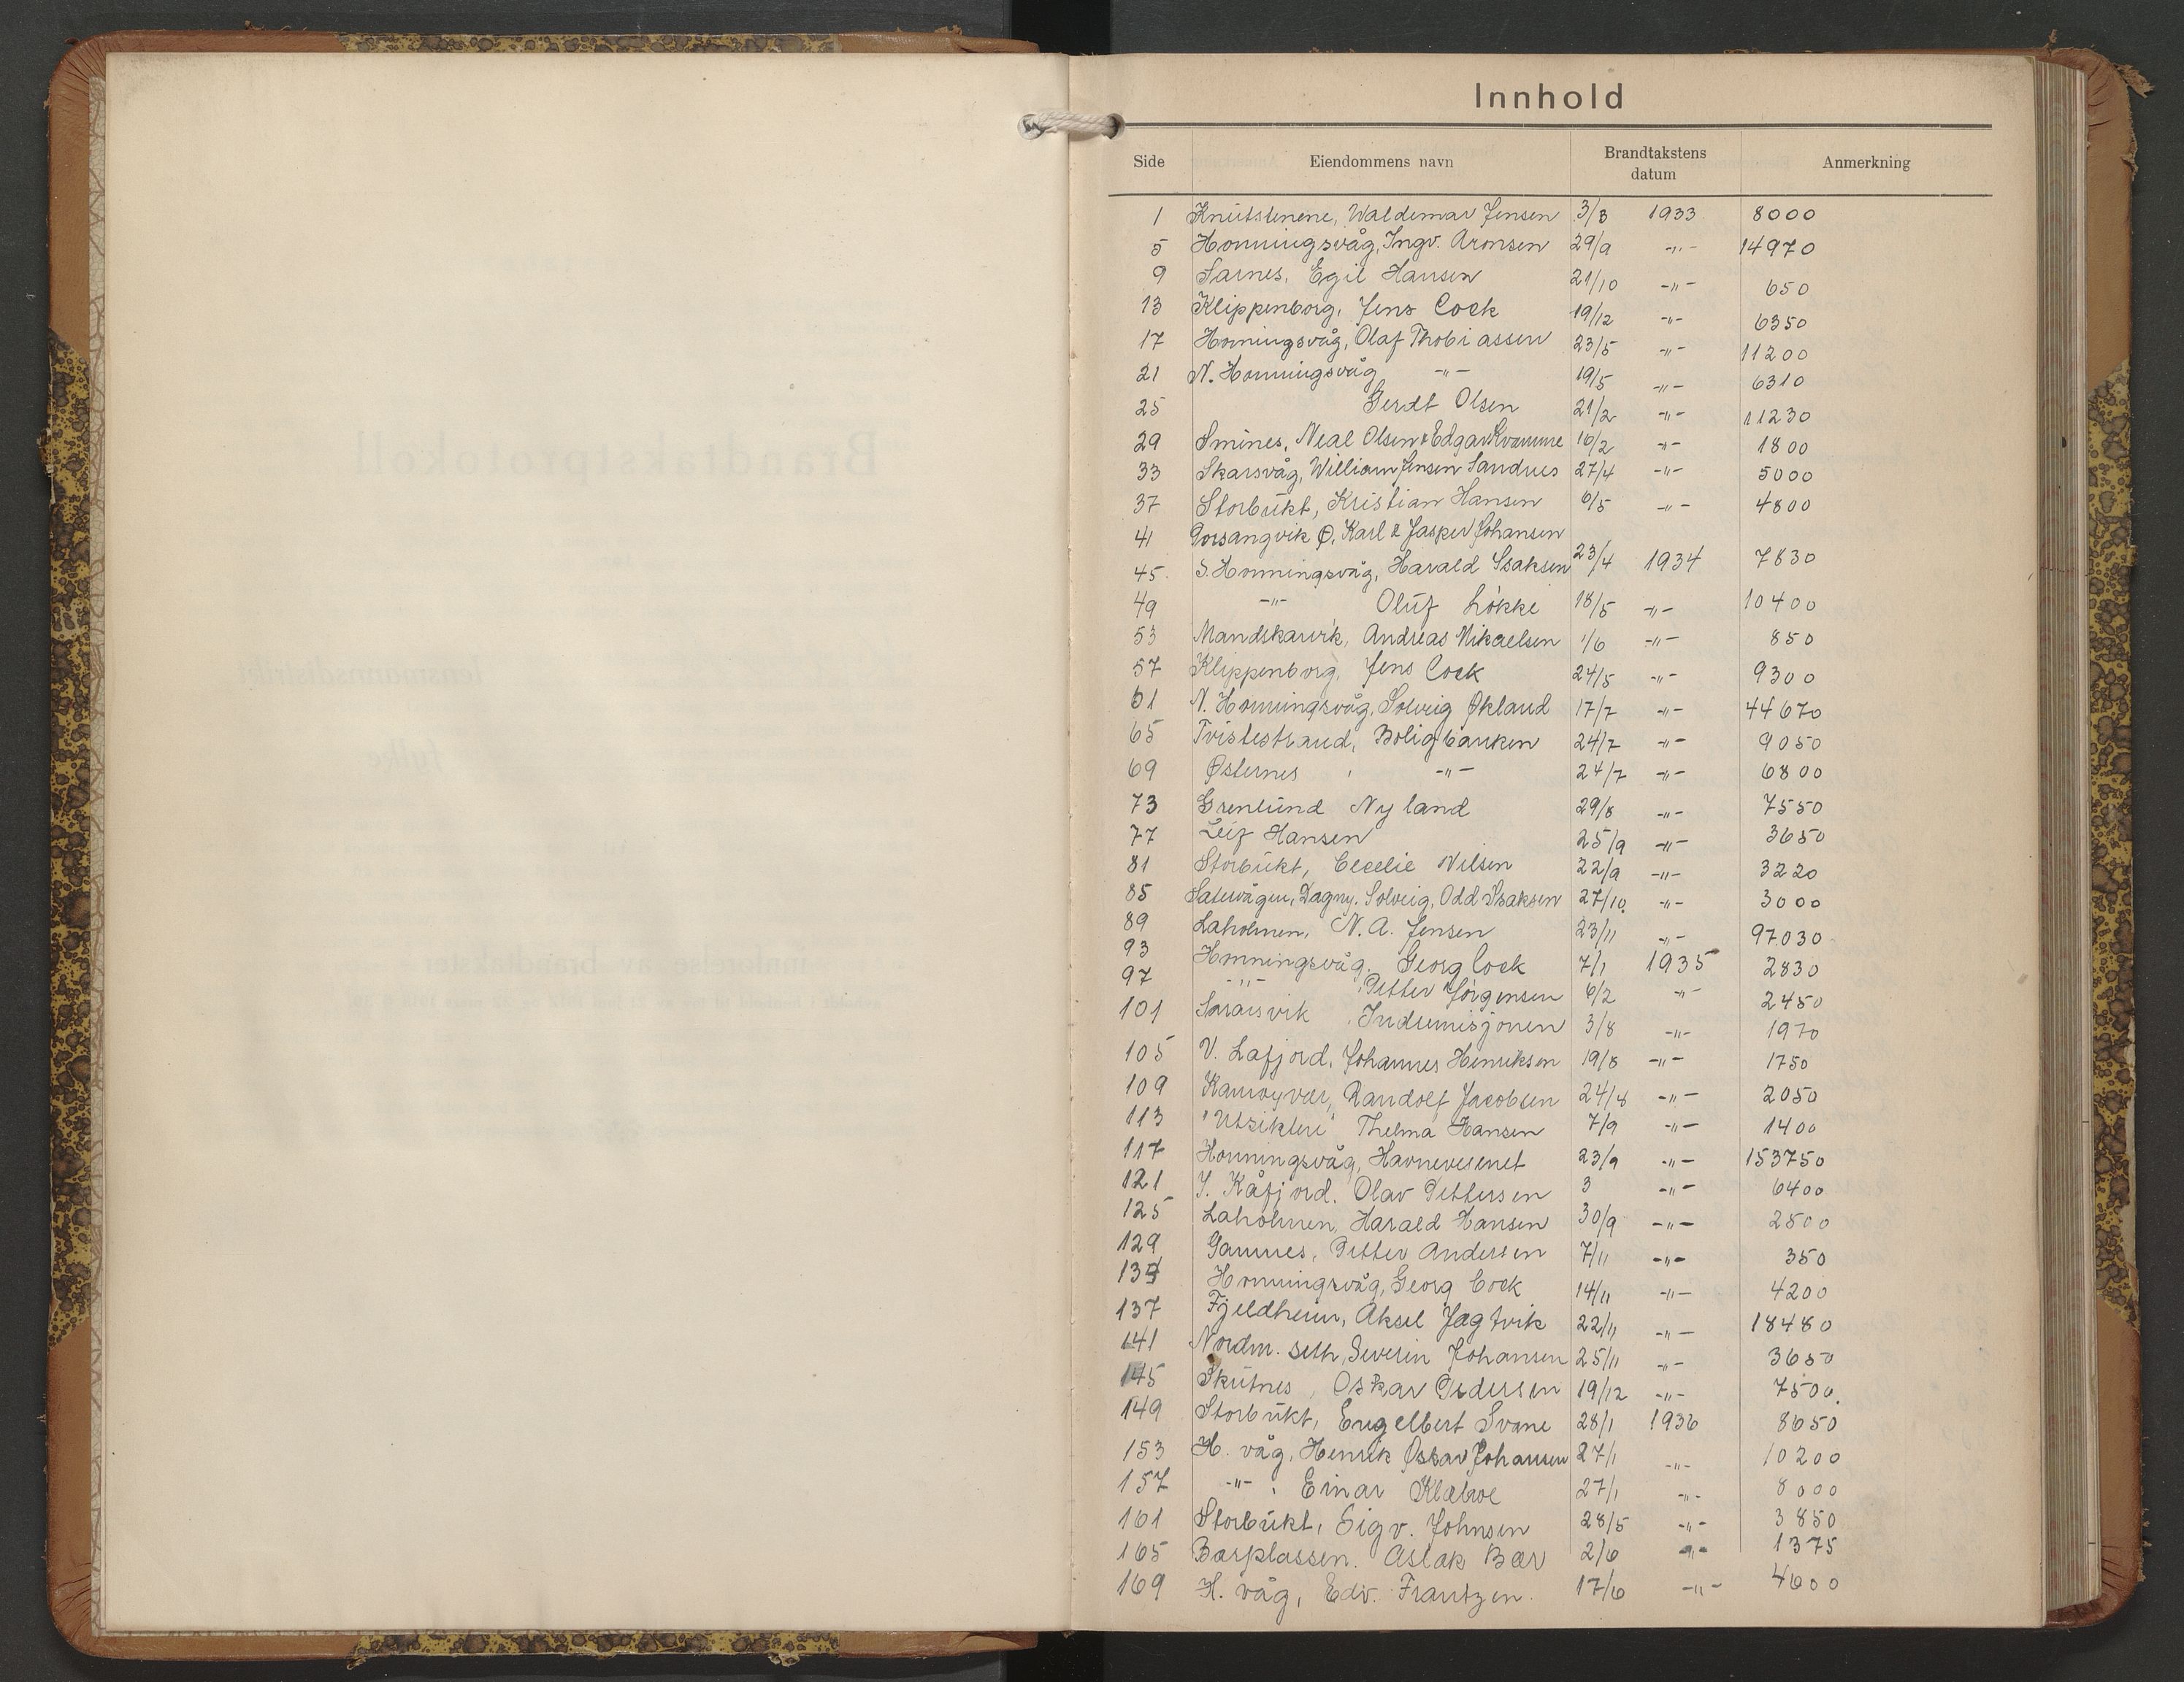 Innhold
Side Eiendommens navn Brandtakstens datum Anmerkning
1 Knutstenene, Waldemar Jensen 3/3 1933 8000
5 Honningsvåg, Ingv. Aronsen 29/9 -"- 14970
9 Sarnes, Egil Hansen 21/10 -"- 650
13 Klippenborg, Jens Cock 19/12 -"- 6350
17 Honningsvåg, Olaf Thobiassen 23/5 -"- 11200
21 N. Honningsvåg -"- 19/5 -"- 6310
25 Gerdt Olsen 21/2 -"- 11230
29 Smines, Neal Olsen & Edgar Kvamme 16/2 -"- 1800
33 Skarsvåg, William Jensen Sandnes 27/4 -"- 5000
37 Storbukt, Kristian Hansen 6/5 -"- 4800
41 Porsangvik Ø, Karl & Jasper Johansen
45 S. Honningsvåg, Harald Isaksen 23/4 1934 7830
49 -"- Oluf Løkke 18/5 -"- 10400
53 Mandskarvik, Andreas Mikaelsen 1/6 -"- 850
57 Klippenborg, Jens Cock 24/5 -"- 9300
61 N. Honningsvåg, Solveig Økland 17/7 -"- 44670
65 Tvistestrand, Boligbanken 24/7 -"- 9050
69 Østernes, -"- 24/7 -"- 6800
73 Grenlund Nyland 29/8 -"- 7550
77 Leif Hansen 25/9 -"- 3650
81 Storbukt, Cecelie Nilsen 22/9 -"- 3220
85 Dagny, Solveig, Odd Isaksen 27/10 -"- 3000
89 Laholmen, N. A. Jensen 23/11 -"- 97030
93 Honningsvåg, Georg Cock 7/1 1935 2830
97 -"- , Petter Jørgensen 6/2 -"- 2450
101 Sarasvik, Indremisjonen 3/8 -"- 1970
105 V. Lafjord, Johannes Henriksen 19/8 -"- 1750
109 Kamøyvær, Randolf Jacobsen 24/8 -"- 2050
113 "Utsikten" Thelma Hansen 7/9 -"- 1400
117 Honningsvåg, Havnevesenet 23/9 -"- 153750
121 I. Kåfjord. Olav Pettersen 3 -"- 6400
125 Laholmen, Harald Hansen 30/9 -"- 2500
129 Gamnes, Petter Andersen 7/11 -"- 350
Honningsvåg, Georg Cock 14/11 -"- 4200
137 Fjeldheim, Aksel Jagtvik 22/11 -"- 18480
141 Nordm. seth, Severin Johansen 25/11 -"- 3650
145 Skutnes, Oskar Pedersen 19/12 -"- 7500.
149 Storbukt, Engelbert Svane 28/1 1936 8650
153 H. våg, Henrik Oskar Johansen 27/1 -"- 10200
157 -"- , Einar Klæboe 27/1 -"- 8000
161 Storbukt, Sigv. Johnsen 28/5 -"- 3850
165 Bærplassen. Aslak Bær 2/6 -"- 1375
169 H. våg, Edv. Frantzen. 17/6 -"- 4600